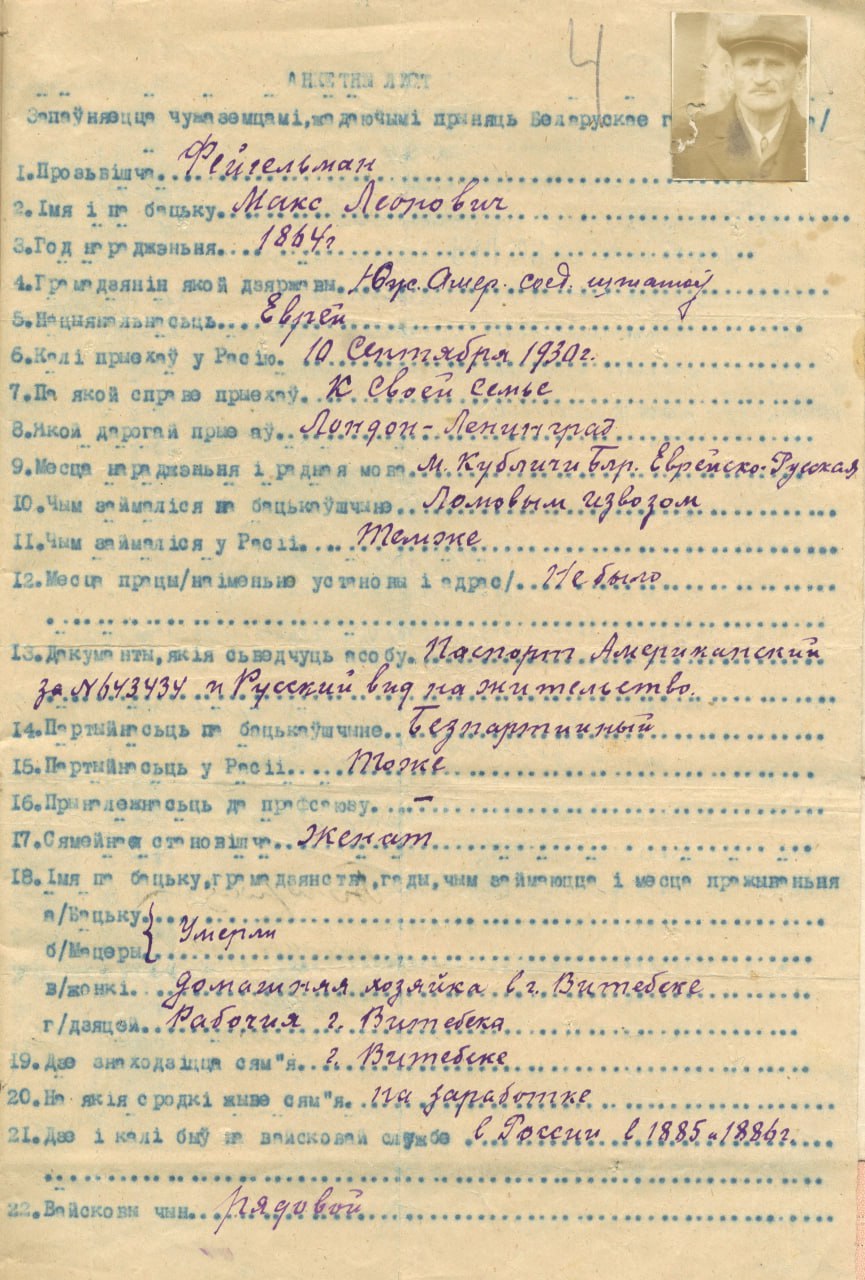 4
АНКЕТНЫ ЛІСТ
Запаўняецца чужаземцамі, жадаючымі прыняць Беларускае г /
1. Прозьвішча. Фейгельман
2. Імя і па бацьку. Макс Леонович
3. Год нараджэньня. 1864г
4. Грамадзянін якой дзяржавы. Амер. соед. штатоў
5. Нацыянальнасьць. Еврей
6. Калі прыехаў у Расію. 10 Сентября 1930г.
7. Па якой справе прыехаў. К Своей семье
8. Якой дарогай прые аў. Лондон-Ленинград
9. Месца нараджэньня і родная мова. м. Кубличи Блр. Еврейско-Русская
10. Чым займаліся на бацькаўшчыне. Ломовым извозом
11. Чым займаліся у Расіі. Темже
12. Месца працы/наіменьне установы і адрас/. Не было
13. Дакуманты, якія сьведчуць асобу. Паспорт Американский
за №643434 и Русский вид на жительство.
14. Партыйнасьць на бацькаўшчыне. Безпартийный
15. Партыйнасьць у Расіі. Тоже
16. Прыналежнасьць да прафсаюзу. –
17. Сямейнае становішча. Женат
18. Імя па бацьку, грамадзянства, гады, чым займаюцца і месца пражываньня
а/Бацьку.
б/Мацеры } Умерли
в/жонкі. домашняя хозяйка в г. Витебске
г/дзяцей. Рабочия г. Витебска
19. Дзе знаходзіцца сям"я. г. Витебске
20. На якія сродкі жыве сям"я. на заработке
21. Дзе і калі быў на вайсковай службе в России в 1885 и 1886г.
22. Вайсковы чын. рядовой